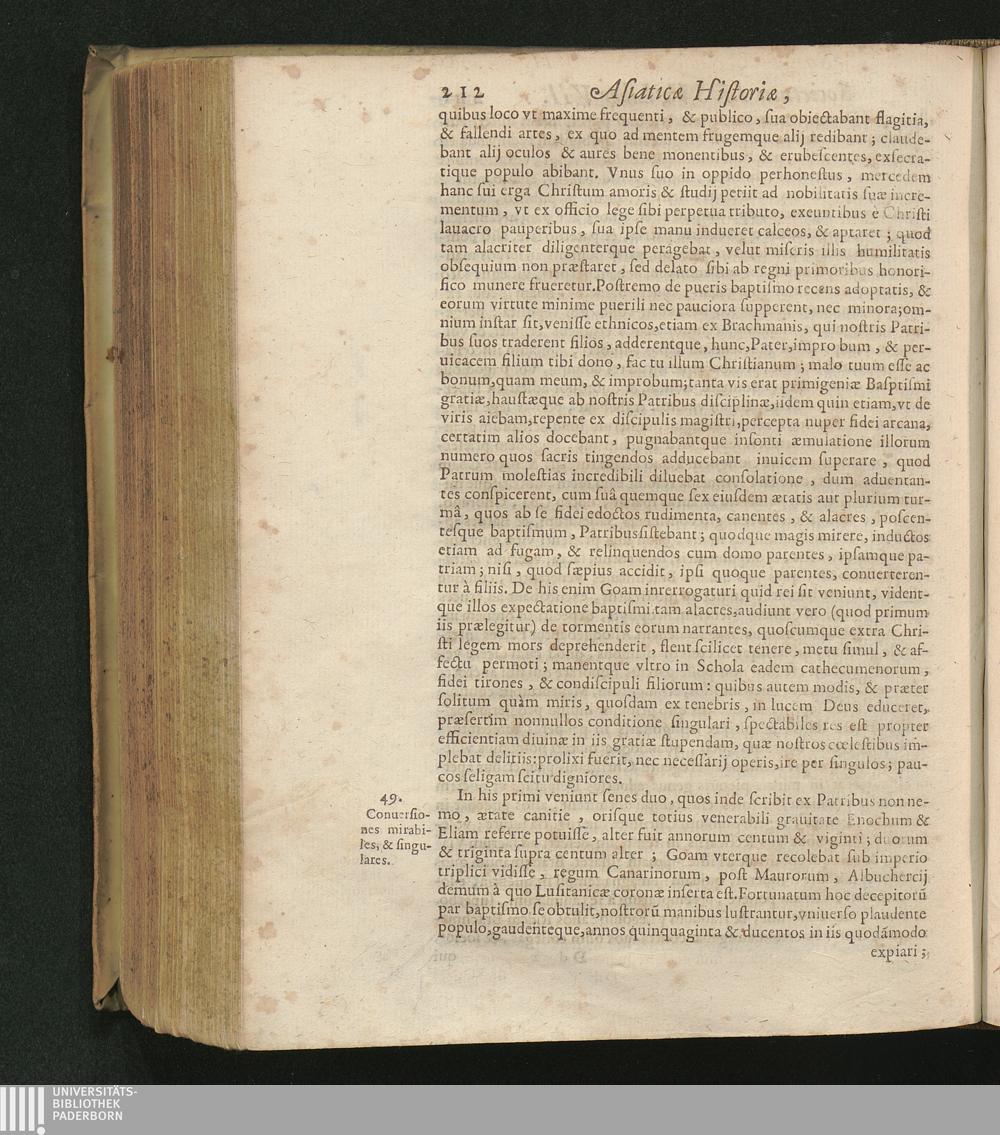 212 Aſiaticæ Hiſtoriæ,
quibus loco vt maxime frequenti, & publico, ſua obiectabant flagitia,
& fallendi artes, ex quo ad mentem frugemque alij redibant; claude-
bant alij oculos & aures bene monentibus, & erubeſcentes, exſecra-
tique populo abibant. Vnus ſuo in oppido perhoneſtus, mercedem
hanc ſui erga Chriſtum amoris & ſtudij petiit ad nobilitatis ſuæ incre-
mentum, vt ex officio lege ſibi perpetua tributo, exeuntibus è Chriſti
lauacro pauperibus, ſua ipſe manu indueret calceos, & aptaret; quod
tam alacriter diligenterque peragebat, velut miſeris illis humilitatis
obſequium non præſtaret, ſed delato ſibi ab regni primoribus honori-
fico munere frueretur.Poſtremo de pueris baptiſmo recens adoptatis, &
eorum virtute minime puerili nec pauciora ſupperent, nec minora;om-
nium inſtar ſit,veniſſe ethnicos,etiam ex Brachmanis, qui noſtris Patri-
bus ſuos traderent filios, adderentque, hunc,Pater,impro bum, & per-
uicacem filium tibi dono, fac tu illum Chriſtianum; malo tuum eſſe ac
bonum,quam meum, & improbum;tanta vis erat primigeniæ Baſptiſmi
gratiæ,hauſtæque ab noſtris Patribus diſciplinæ,iidem quin etiam,vt de
viris aiebam,repente ex diſcipulis magiſtri,percepta nuper fidei arcana,
certatim alios docebant, pugnabantque inſonti æmulatione illorum
numero quos ſacris tingendos adducebant inuicem ſuperare, quod
Patrum moleſtias incredibili diluebat conſolatione, dum aduentan-
tes conſpicerent, cum ſuâ quemque ſex eiuſdem ætatis aut plurium tur-
mâ, quos ab ſe fidei edoctos rudimenta, canentes, & alacres, poſcen-
teſque baptiſmum, Patribusſiſtebant; quodque magis mirere, inductos
etiam ad fugam, & relinquendos cum domo parentes, ipſamque pa-
triam; niſi, quod ſæpius accidit, ipſi quoque parentes, conuerteren-
tur à filiis. De his enim Goam inrerrogaturi quid rei ſit veniunt, vident-
que illos expectatione baptiſmi.tam alacres,audiunt vero (quod primum
iis prælegitur) de tormentis eorum narrantes, quoſcumque extra Chri-
ſti legem mors deprehenderit, flent ſcilicet tenere, metu ſimul, & af-
fectu permoti; manentque vltro in Schola eadem cathecumenorum,
fidei tirones, & condiſcipuli filiorum: quibus autem modis, & præter
ſolitum quàm miris, quoſdam ex tenebris, in lucem Deus educeret,
præſertim nonnullos conditione ſingulari, ſpectabiles res eſt propter
efficientiam diuinæ in iis gratiæ ſtupendam, quæ noſtros cœleſtibus im-
plebat delitiis:prolixi fuerit, nec neceſſarij operis,ire per ſingulos; pau-
cos ſeligam ſcitu digniores.
49.
Conuerſio-
nes mirabi-
les, & ſingu-
lares.
In his primi veniunt ſenes duo, quos inde ſcribit ex Patribus non ne-
mo, ætate canitie, oriſque totius venerabili grauitate Enochum &
Eliam referre potuiſſe, alter fuit annorum centum & viginti; duorum
& triginta ſupra centum alter; Goam vterque recolebat ſub imperio
triplici vidiſſe, regum Canarinorum, poſt Maurorum, Albuchercij
demum à quo Luſitanicæ coronæ inſerta eſt.Fortunatum hoc decepitorũ
par baptiſmo ſe obtulit,noſtrorũ manibus luſtrantur,vniuerſo plaudente
populo,gaudenteque,annos quinquaginta & ducentos in iis quodãmodo
expiari;
UNIVERSITÄTS-
BIBLIOTHEK
PADERBORN